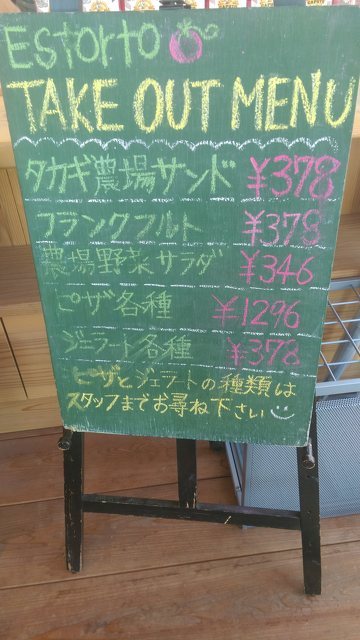 Estorto
TAKE OUT MENU
タカギ農場サンド ¥378
フランクフルト ¥378
農場野菜サラダ ¥346
ピザ各種 ¥1296
ジェラート各種 ¥378
ピザとジェラートの種類は
スタッフまでお尋ね下さい